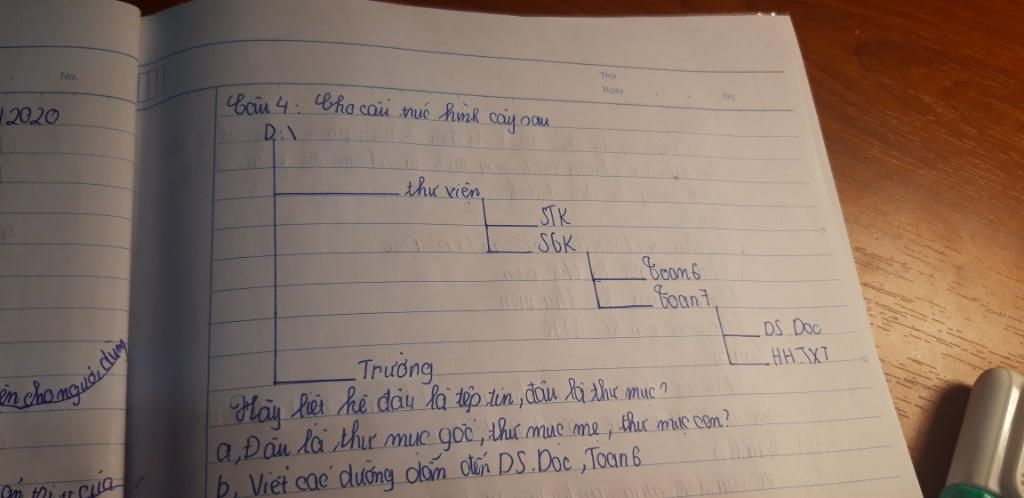 No.
Thứ
Ngày
No.
2020
Câu 4: Cho cấu trúc hình cây sau
D:\
thư viện
STK
SGK
Toan6
Toan7
DS.Doc
HH.TXT
Trường
Hãy liệt kê đâu là tệp tin, đâu là thư mục?
a, Đâu là thư mục gốc, thư mục mẹ, thư mục con?
b, Viết các đường dẫn đến DS.Doc, Toan6
cho người dùng
của